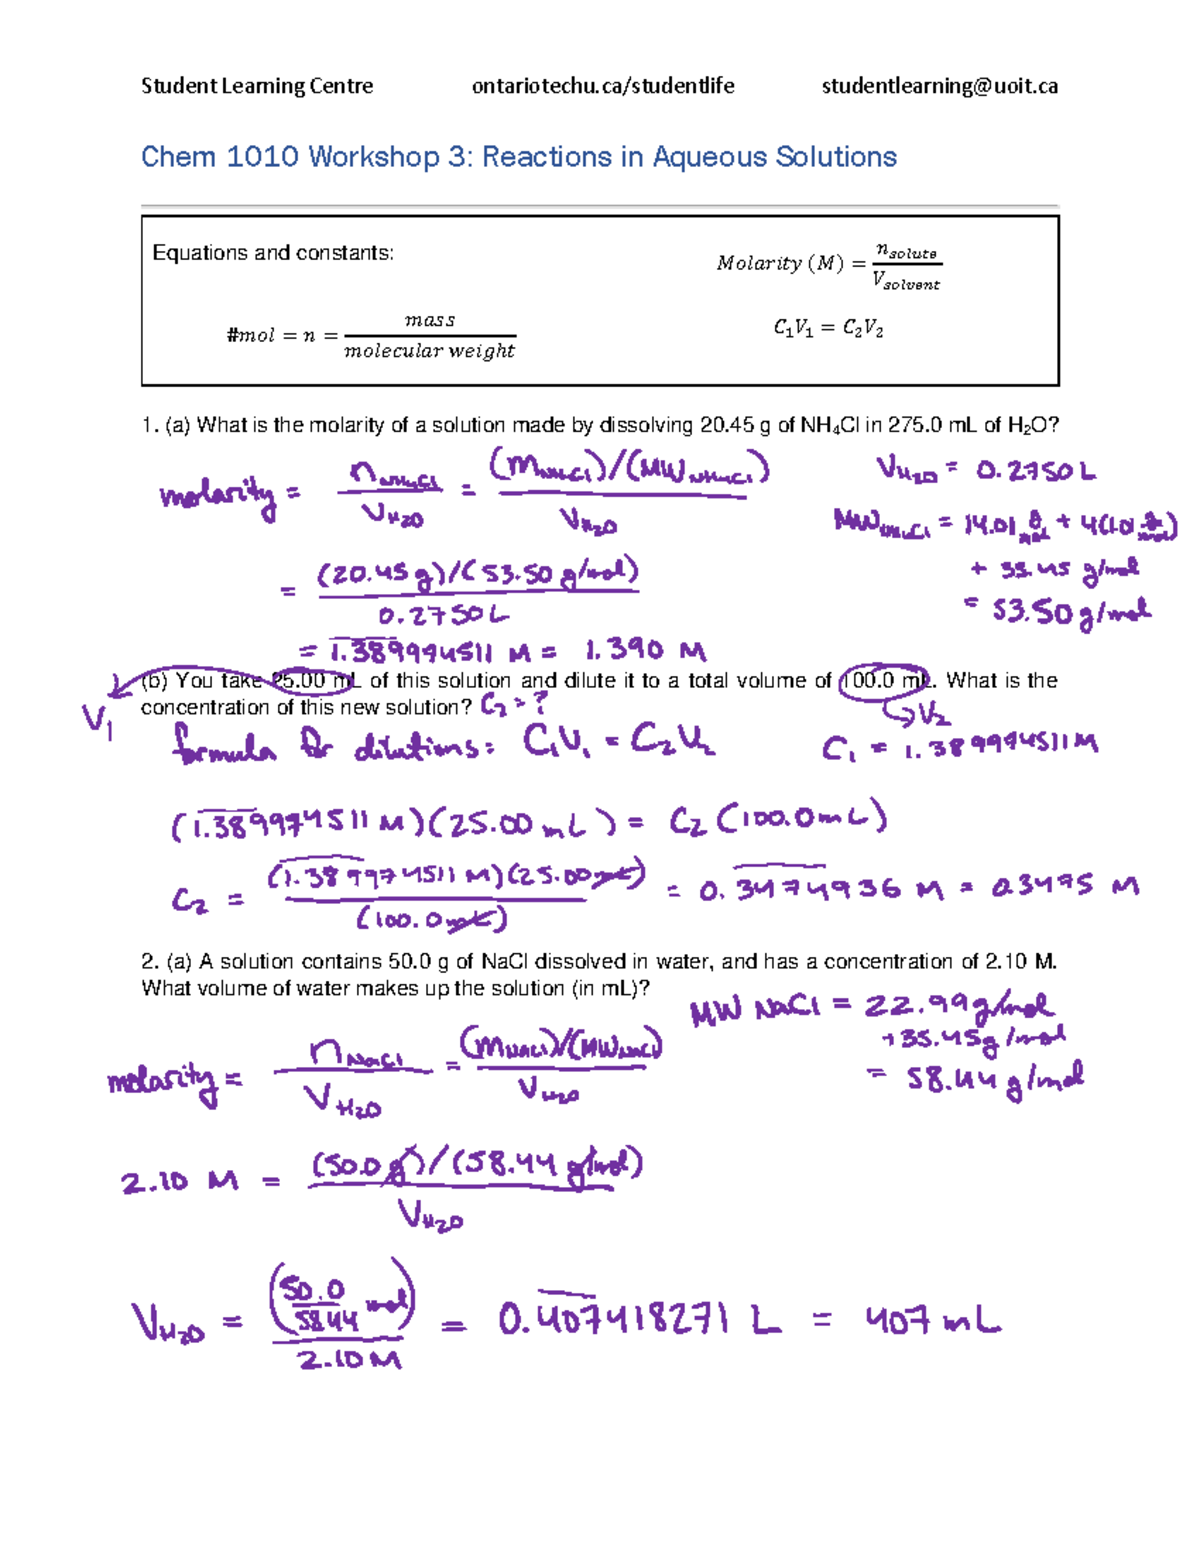 Student Learning Centre ontariotechu.ca/studentlife studentlearning@uoit.ca
Chem 1010 Workshop 3: Reactions in Aqueous Solutions
Equations and constants:
Molarity (M) = n_solute / V_solvent
#mol = n = mass / molecular weight
C₁V₁ = C₂V₂
1. (a) What is the molarity of a solution made by dissolving 20.45 g of NH₄Cl in 275.0 mL of H₂O?
molarity = n_NH₄Cl / V_H₂O = (m_NH₄Cl)/(MW_NH₄Cl) / V_H₂O
V_H₂O = 0.2750 L
MW_NH₄Cl = 14.01 g/mol + 4(1.01 g/mol)
+ 35.45 g/mol
= 53.50 g/mol
= (20.45 g)/(53.50 g/mol) / 0.2750 L
= 1.389994511 M = 1.390 M
(b) You take 25.00 mL of this solution and dilute it to a total volume of 100.0 mL. What is the
concentration of this new solution? C₂ = ?
V₁
V₂
formula for dilutions: C₁V₁ = C₂V₂
C₁ = 1.389994511 M
(1.389974511 M)(25.00 mL) = C₂ (100.0 mL)
C₂ = (1.389974511 M)(25.00 mL) / (100.0 mL) = 0.34744936 M = 0.3475 M
2. (a) A solution contains 50.0 g of NaCl dissolved in water, and has a concentration of 2.10 M.
What volume of water makes up the solution (in mL)?
MW NaCl = 22.99 g/mol
+ 35.45 g/mol
= 58.44 g/mol
molarity = n_NaCl / V_H₂O = (m_NaCl)/(MW_NaCl) / V_H₂O
2.10 M = (50.0 g)/(58.44 g/mol) / V_H₂O
V_H₂O = (50.0/58.44 mol) / 2.10 M = 0.407418271 L = 407 mL